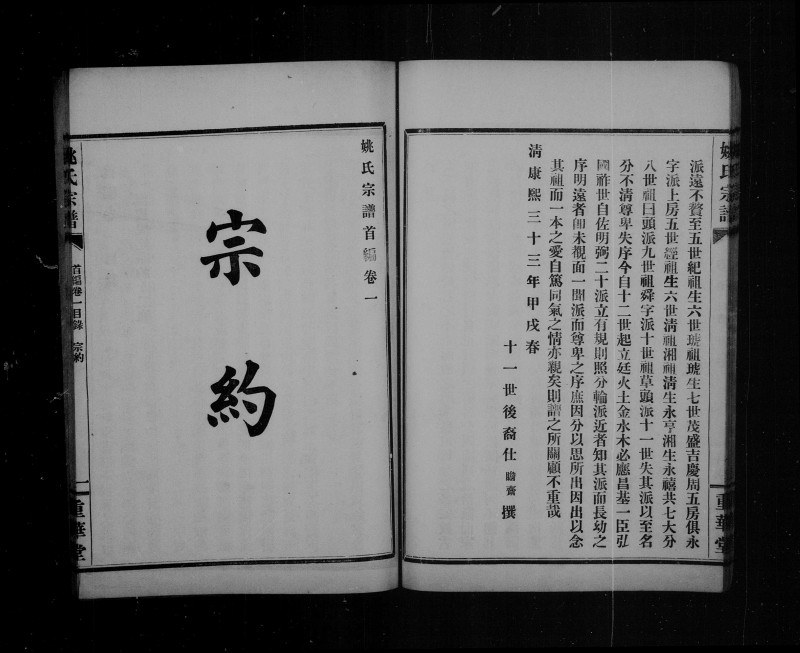 姚氏宗譜
重華堂
派遠不贅至五世紀祖生六世琥祖琥生七世茂盛吉慶周五房俱永
字派上房五世經祖生六世清祖湘祖清生永亨湘生永禧共七大分
八世祖日頭派九世祖舜字派十世祖草頭派十一世失其派以至名
分不清尊卑失序今自十二世起立廷火土金水木必應昌基一臣弘
國祚世自佐明弼二十派立有規則照分輪派近者知其派而長幼之
序明遠者卽未覩面一聞派而尊卑之序庶因分以思所出因出以念
其祖而一本之愛自篤同氣之情亦親矣則譜之所關顧不重哉
清康熙三十三年甲戌春
十一世後裔仕瞻齋撰
姚氏宗譜首編卷一
宗約
姚氏宗譜
首編卷一目錄 宗約
一
重華堂